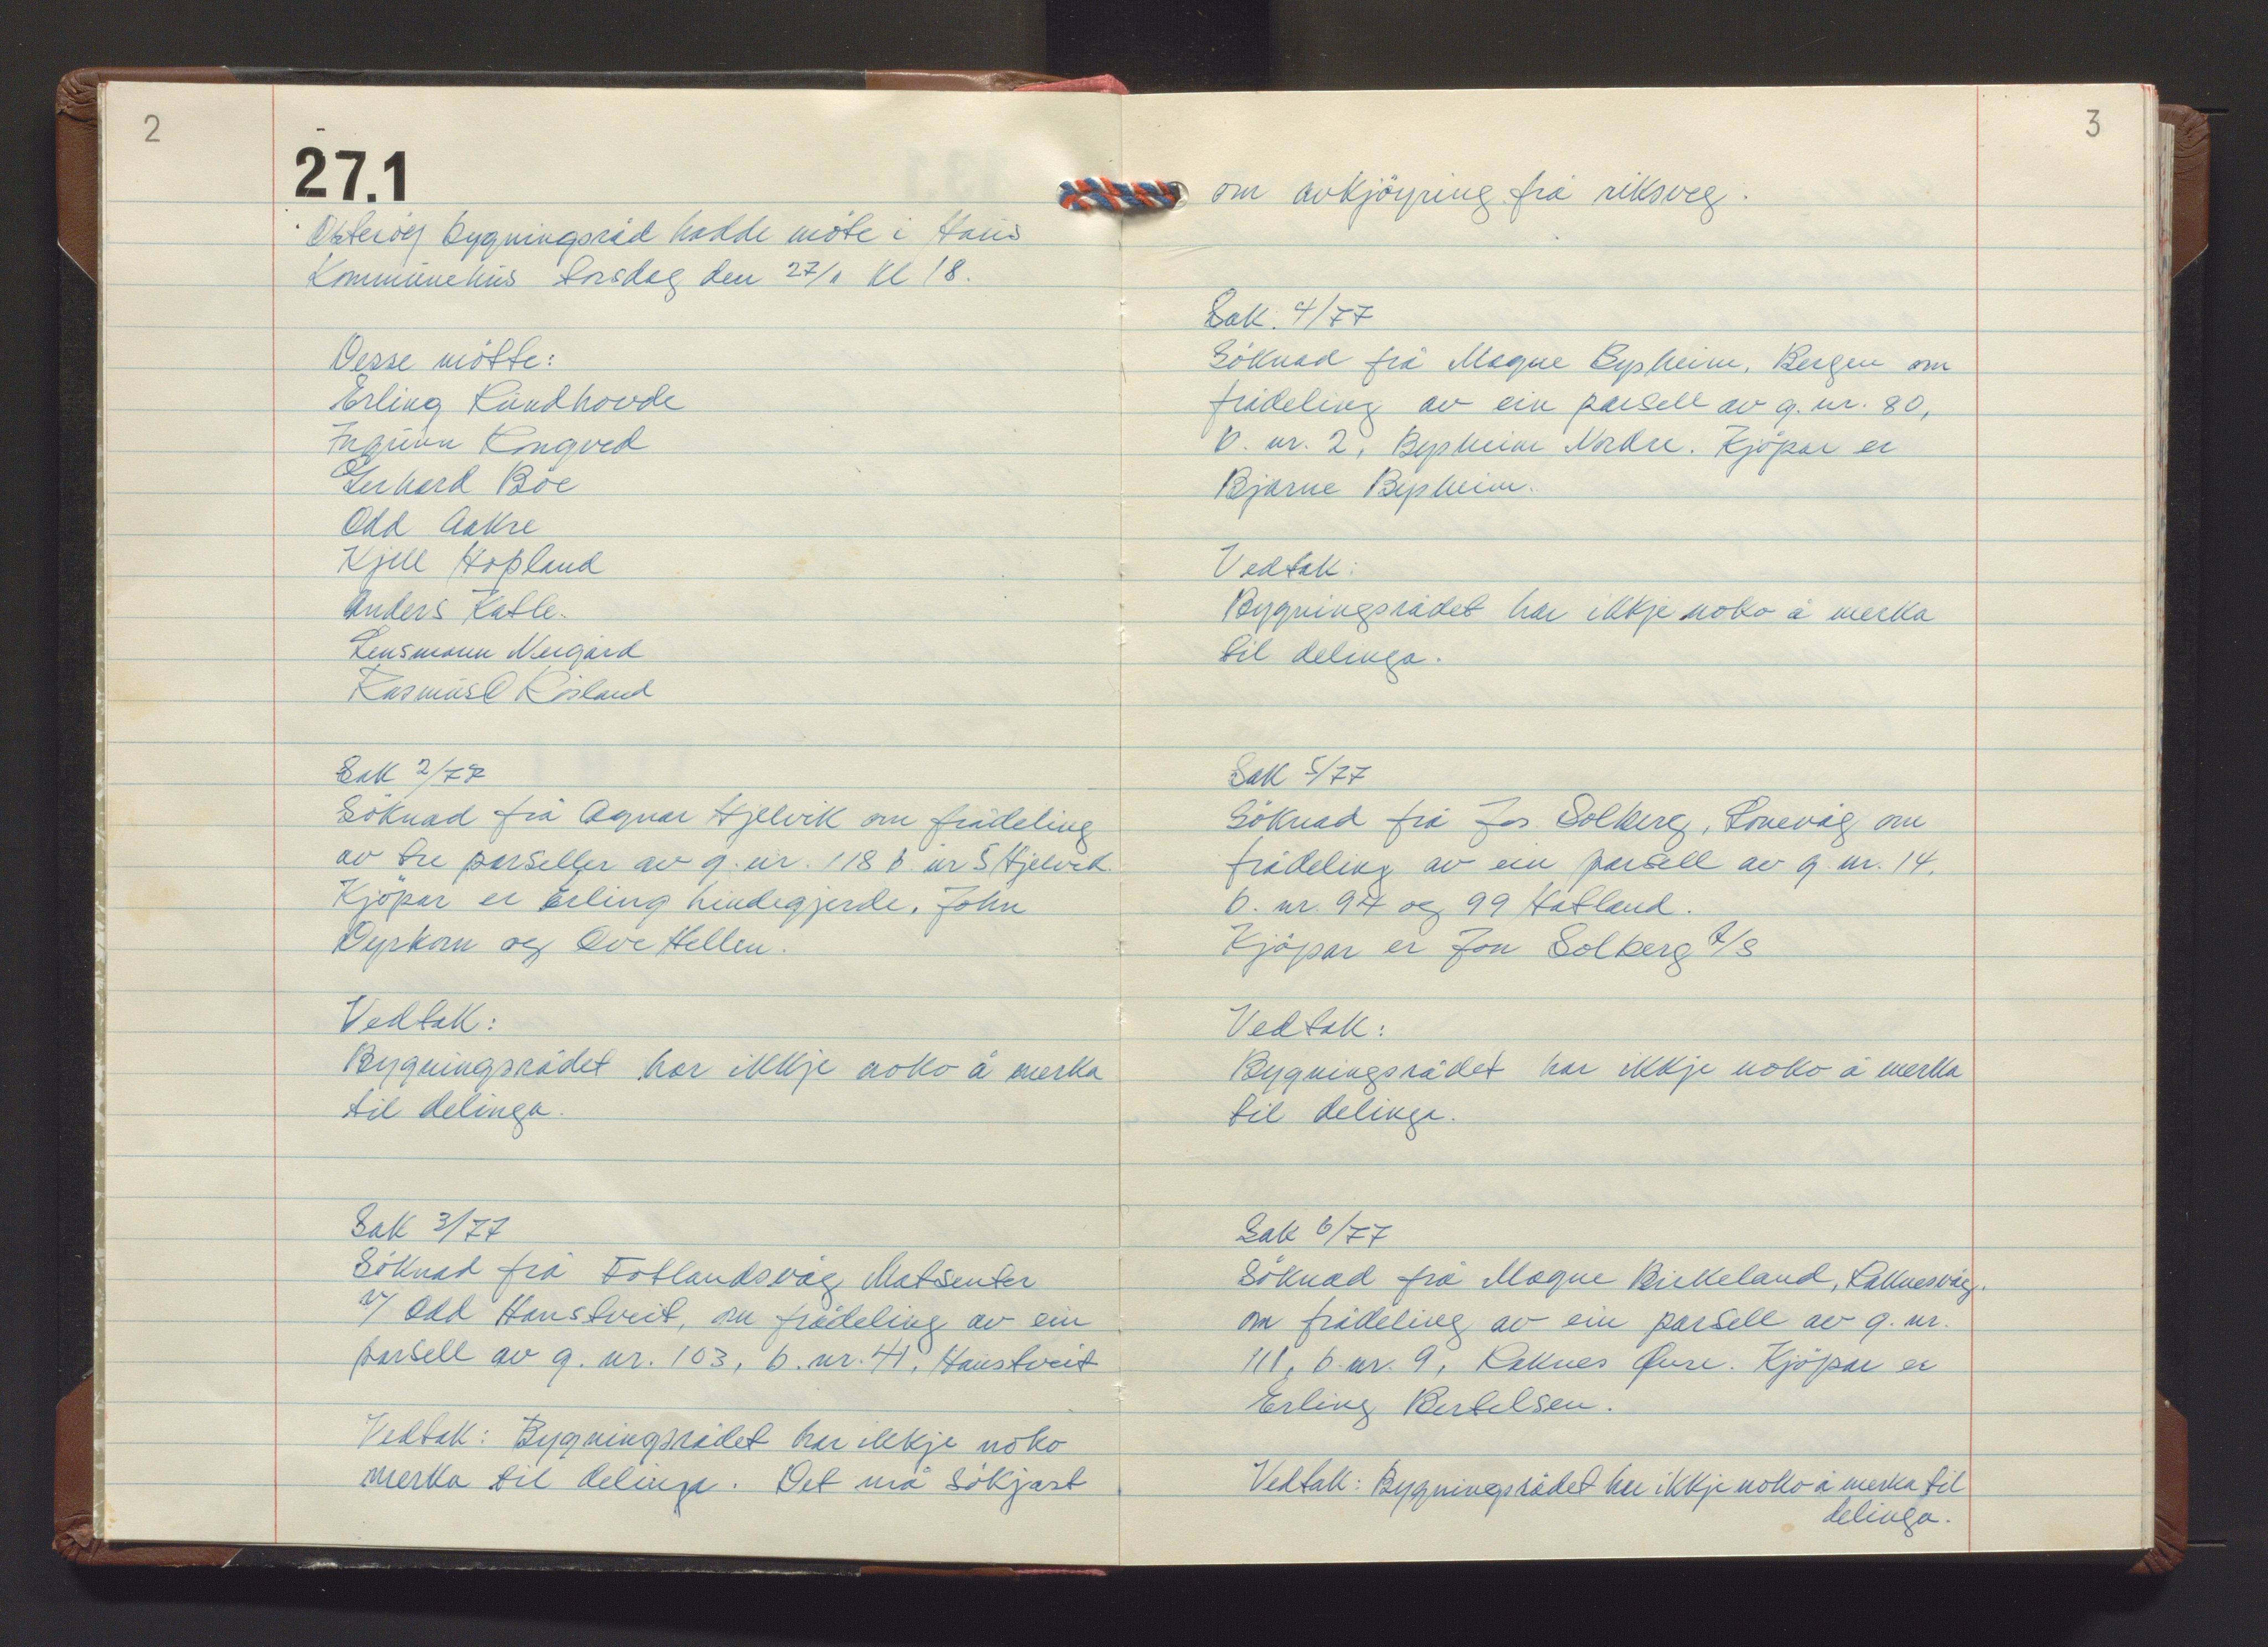 2
27.1
Osteröy bygningsråd hadde möte i Haus
Kommunehus torsdag den 27/1 kl 18.
Desse mötte:
Erling Rundhovde
Ingunn Kongved
Gerhard Böe
Odd Aakre
Kjell Hopland
Anders Katle.
Lensmann Mergård
Rasmus O Kösland
Sak 2/77
Söknad frå Agnar Hjelvik om frådeling
av tre parseller av g. nr. 118 b. nr 5 Hjelvik.
Kjöpar er Erling Lindegjerde, John
Dyrkorn og Ove Hellen.
Vedtak:
Bygningsrådet har ikkje noko å merka
til delinga.
Sak 3/77
Söknad frå Fotlandsvåg Matsenter
v/ Odd Haustveit, om frådeling av ein
parsell av g. nr. 103, b. nr. 41, Haustveit
Vedtak: Bygningsrådet har ikkje noko
merka til delinga. Det må sökjast
3
om avkjöyring frå riksveg.
Sak. 4/77
Söknad frå Magne Bysheim, Bergen om
frådeling av ein parsell av g. nr. 80,
b. nr. 2, Bysheim Nordre. Kjöpar er
Bjarne Bysheim.
Vedtak:
Bygningsrådet har ikkje noko å merka
til delinga.
Sak 5/77
Söknad frå Jos Solberg, Lonevåg om
frådeling av ein parsell av g. nr. 14,
b. nr. 97 og 99 Hatland.
Kjöpar er Jon Solberg A/S
Vedtak:
Bygningsrådet har ikkje noko å merka
til delinga.
Sak 6/77
Söknad frå Magne Birkeland, Raknesvåg.
om frådeling av ein parsell av g. nr.
111, b. nr. 9, Raknes Øvre. Kjöpar er
Erling Bertelsen.
Vedtak: Bygningsrådet har ikkje noko å merka til
delinga.